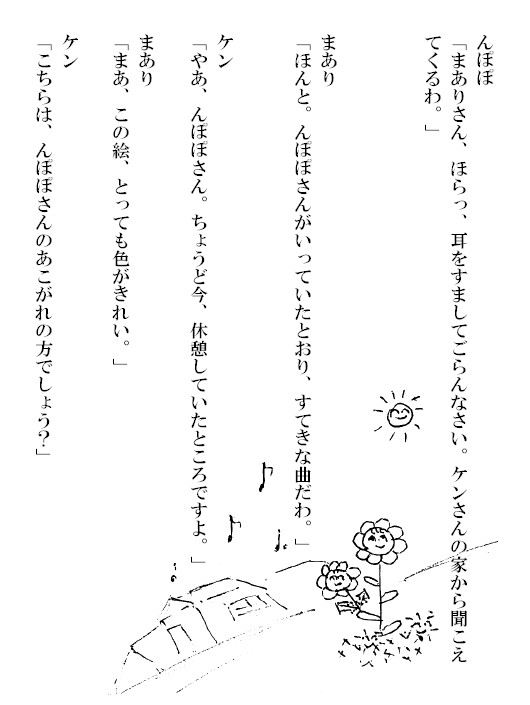 んぽぽ
「まありさん、ほらっ、耳をすましてごらんなさい。ケンさんの家から聞こえ
てくるわ。」
まあり
「ほんと。んぽぽさんがいっていたとおり、すてきな曲だわ。」
ケン
「やあ、んぽぽさん。ちょうど今、休憩していたところですよ。」
まあり
「まあ、この絵、とっても色がきれい。」
ケン
「こちらは、んぽぽさんのあこがれの方でしょう?」